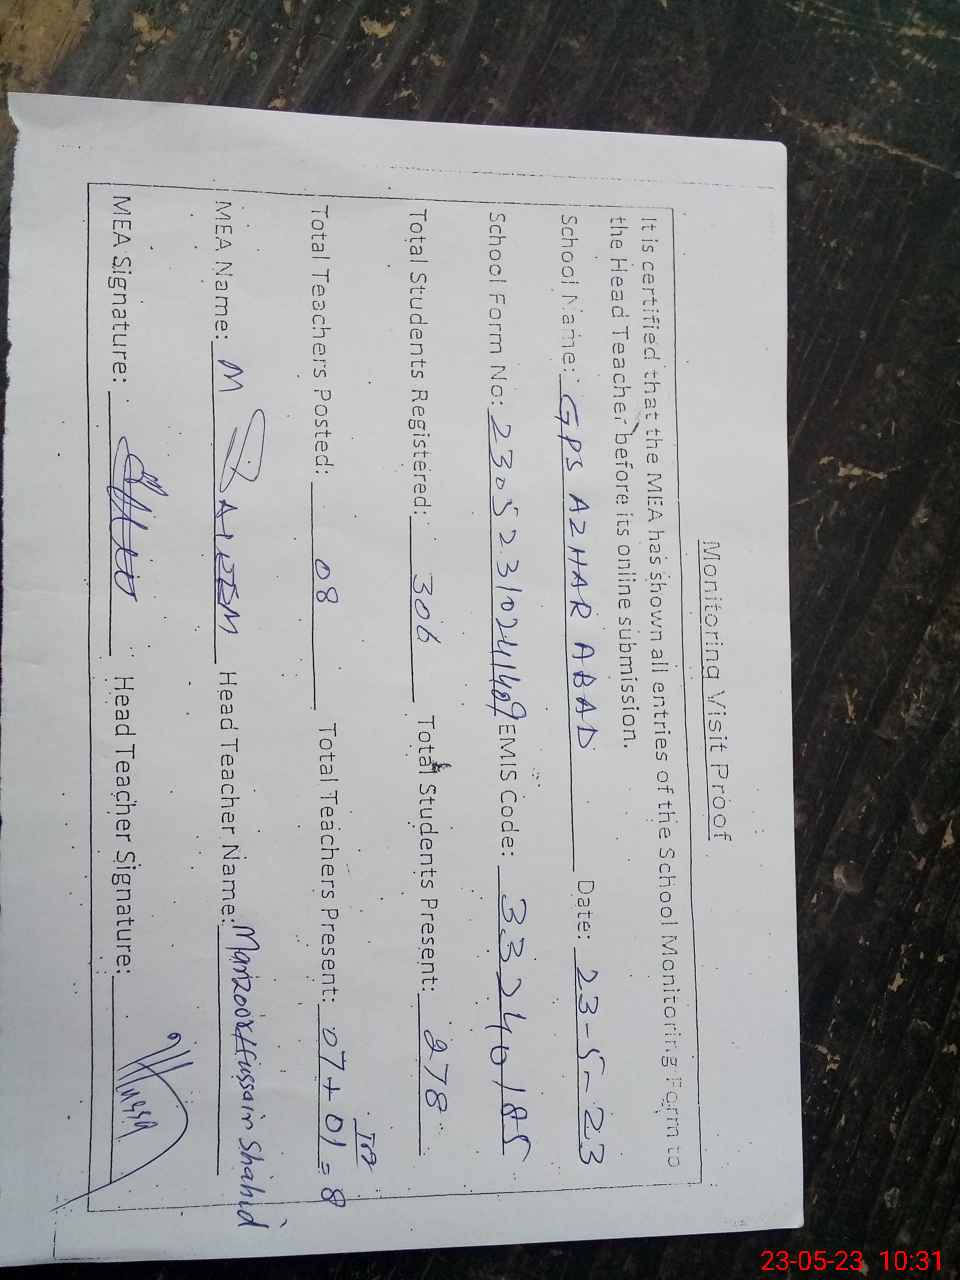 Monitoring Visit Proof
It is certified that the MEA has shown all entries of the School Monitoring Form to
the Head Teacher before its online submission.
School Name: GPS AZHAR ABAD Date: 23-5-23
School Form No: EMIS Code: 33240185
Total Students Registered: 306 Total Students Present: 278
Total Teachers Posted: 08 Total Teachers Present: 07+01=8
MEA Name: M Head Teacher Name: Manzoor Hussain Shahid
MEA Signature: Head Teacher Signature:
23-05-23 10:31